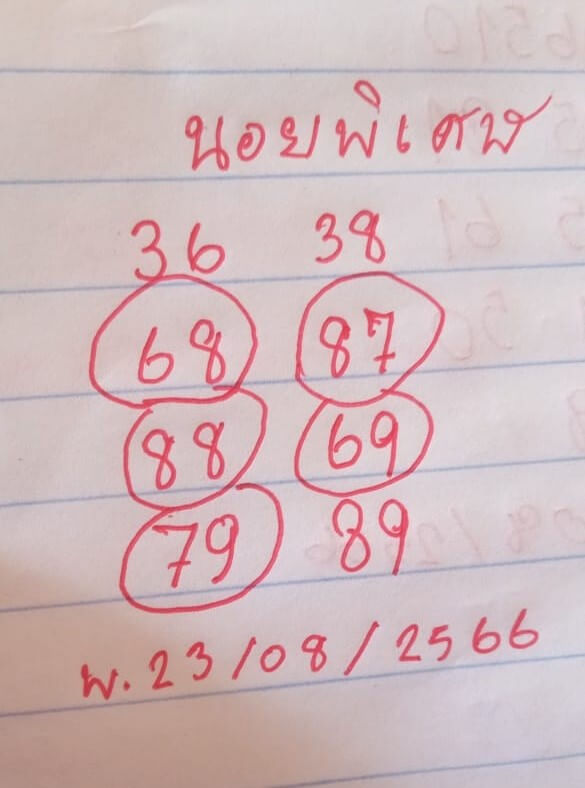 นอยพิเศษ
36 38
68 87
88 69
79 89
พ. 23/08/2566